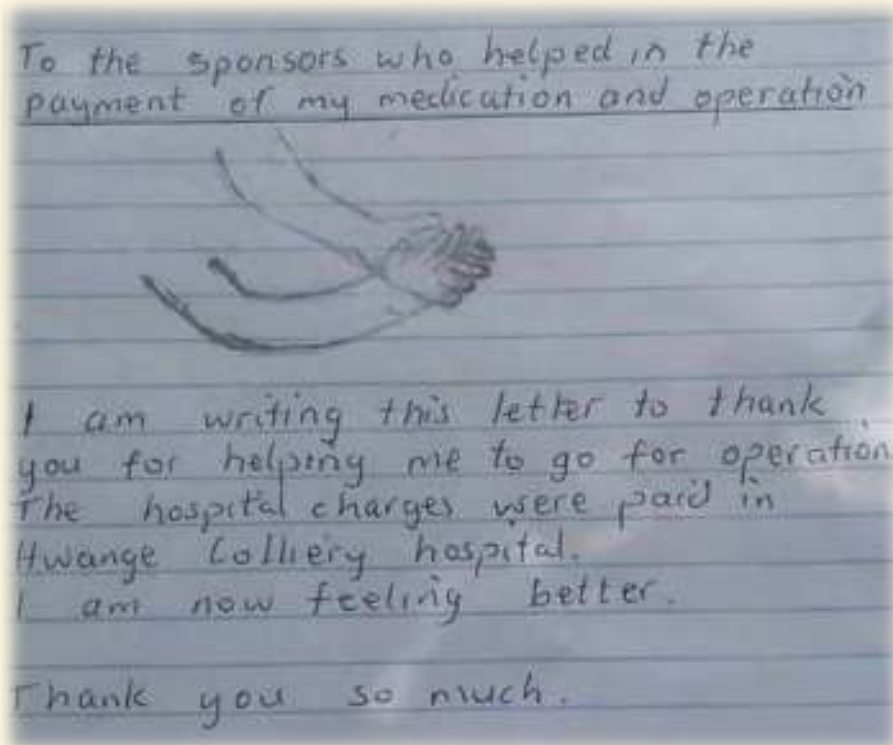 To the sponsors who helped in the
payment of my medication and operation
I am writing this letter to thank
you for helping me to go for operation
The hospital charges were paid in
Hwange Colliery hospital.
I am now feeling better.
Thank you so much.